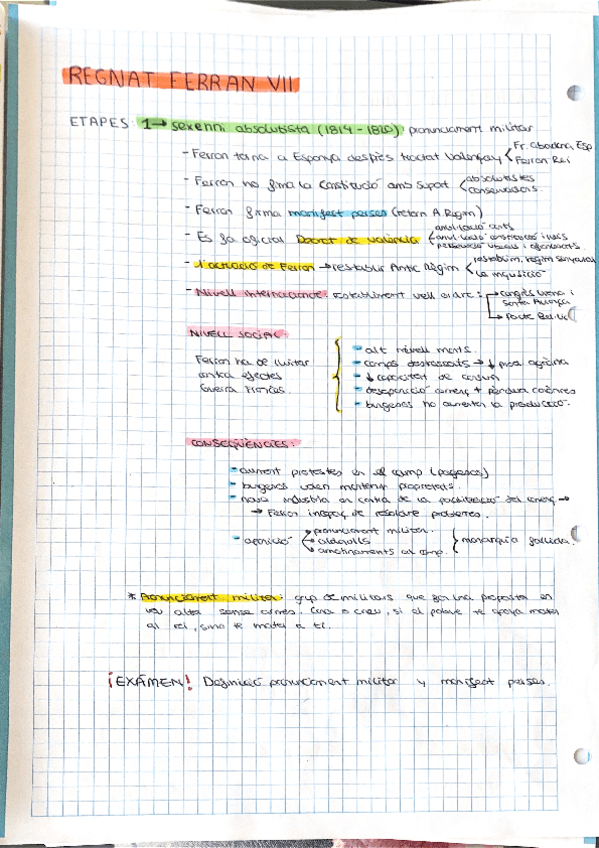 REGNAT FERRAN VII
ETAPES: 1→ sexenni absolutista (1814-1820) pronunciament militar
- Ferran torna a Espanya després tractat Valençay < Fr. abandona Esp
Ferran Rei
- Ferran no firma la Constitució amb suport < absolutistes
conservadors.
- Ferran firma manifest perses (retorn A. Regim)
- Es fa oficial Decret de València
anul·lació corts
anul·lació constitució i lleis
persecució liberals i
- l'actuació de Ferran → restablir Antic Règim < restablim. regim senyorial
La inquisició
- Nivell internacional: Establiment vell ordre: → congrés Viena i
Santa Aliança
→ Pacte
NIVELL SOCIAL:
Ferran ha de lluitar
contra efectes
Guerra Francès.
- alt nivell morts.
- camps destrossats → ↓ prod. agrària
- ↓ capacitat de consum
- desaparició comerç + pèrdua colònies
- burgesos no augmenten la producció.
CONSEQÜÈNCIES:
- augment protestes en el camp (pagesos)
- burgesos volen mantenir propietats.
- nova indústria en contra de la paralització del comerç →
→ Ferran incapaç de resoldre problemes.
- aparició
pronunciament militar.
aldarulls
amotinaments al camp.
} monarquia fallida.
* Pronunciament militar: grup de militars que fan una proposta en
veu alta sense armes. Cara o creu, si el poble te apoya mates
al rei, sino te maten a tí.
¡EXÁMEN! Definició pronunciament militar y manifest perses.